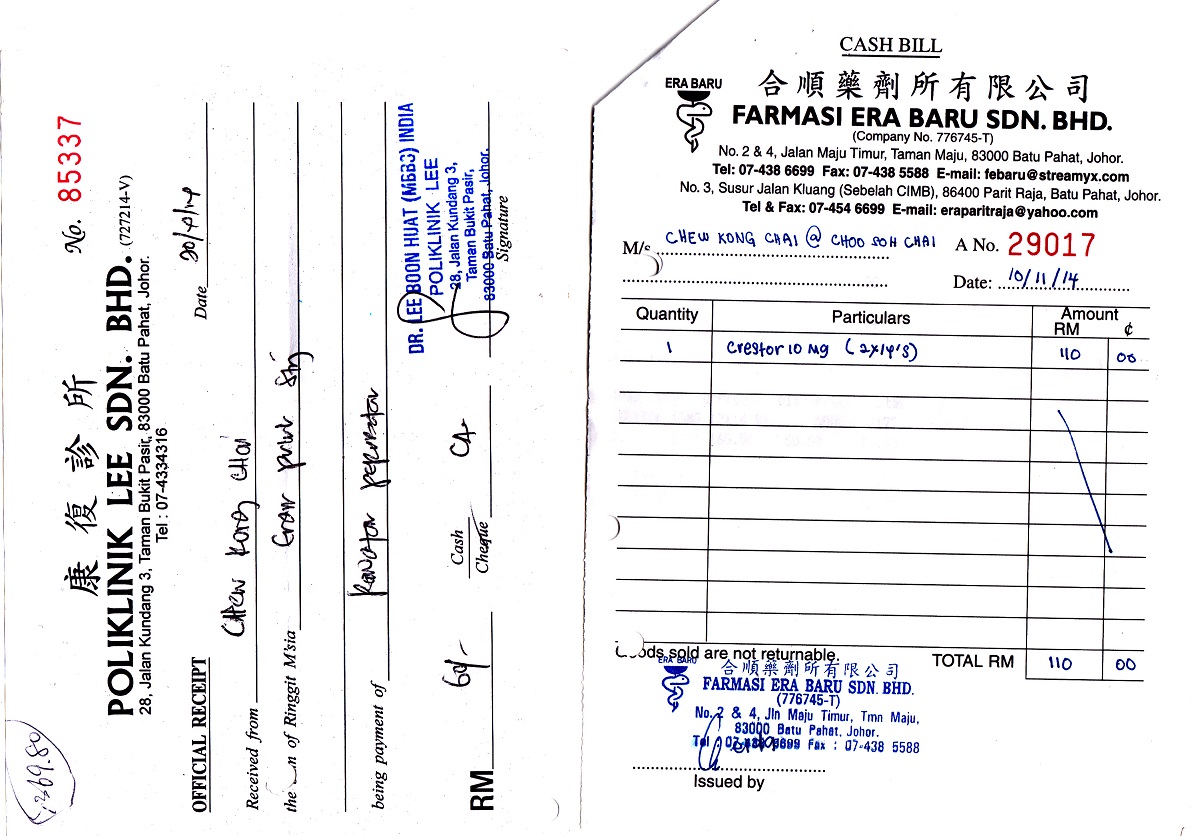 康復診所 No. 85337
POLIKLINIK LEE SDN. BHD. (727214-V)
28, Jalan Kundang 3, Taman Bukit Pasir, 83000 Batu Pahat, Johor.
Tel : 07-4334316
OFFICIAL RECEIPT
Date
Received from CHEW KONG CHAI
the of Ringgit M'sia
being payment of
RM 60/-
Cash
Cheque
DR. LEE BOON HUAT (MBBS) INDIA
POLIKLINIK LEE
28, Jalan Kundang 3,
Taman Bukit Pasir,
83000 Batu Pahat, Johor.
Signature
CASH BILL
ERA BARU
合順藥劑所有限公司
FARMASI ERA BARU SDN. BHD.
(Company No. 776745-T)
No. 2 & 4, Jalan Maju Timur, Taman Maju, 83000 Batu Pahat, Johor.
Tel: 07-438 6699 Fax: 07-438 5588 E-mail: febaru@streamyx.com
No. 3, Susur Jalan Kluang (Sebelah CIMB), 86400 Parit Raja, Batu Pahat, Johor.
Tel & Fax: 07-454 6699 E-mail: eraparitraja@yahoo.com
M/s CHEW KONG CHAI @ CHOO SOH CHAI A No. 29017
Date: 10/11/14
Quantity Particulars Amount
RM ¢
1 Crestor 10 Mg (2x14's) 110 00
Goods sold are not returnable.
TOTAL RM 110 00
ERA BARU
合順藥劑所有限公司
FARMASI ERA BARU SDN. BHD.
(776745-T)
No. 2 & 4, Jln Maju Timur, Tmn Maju,
83000 Batu Pahat, Johor.
Tel : 07-438 6699 Fax : 07-438 5588
Issued by